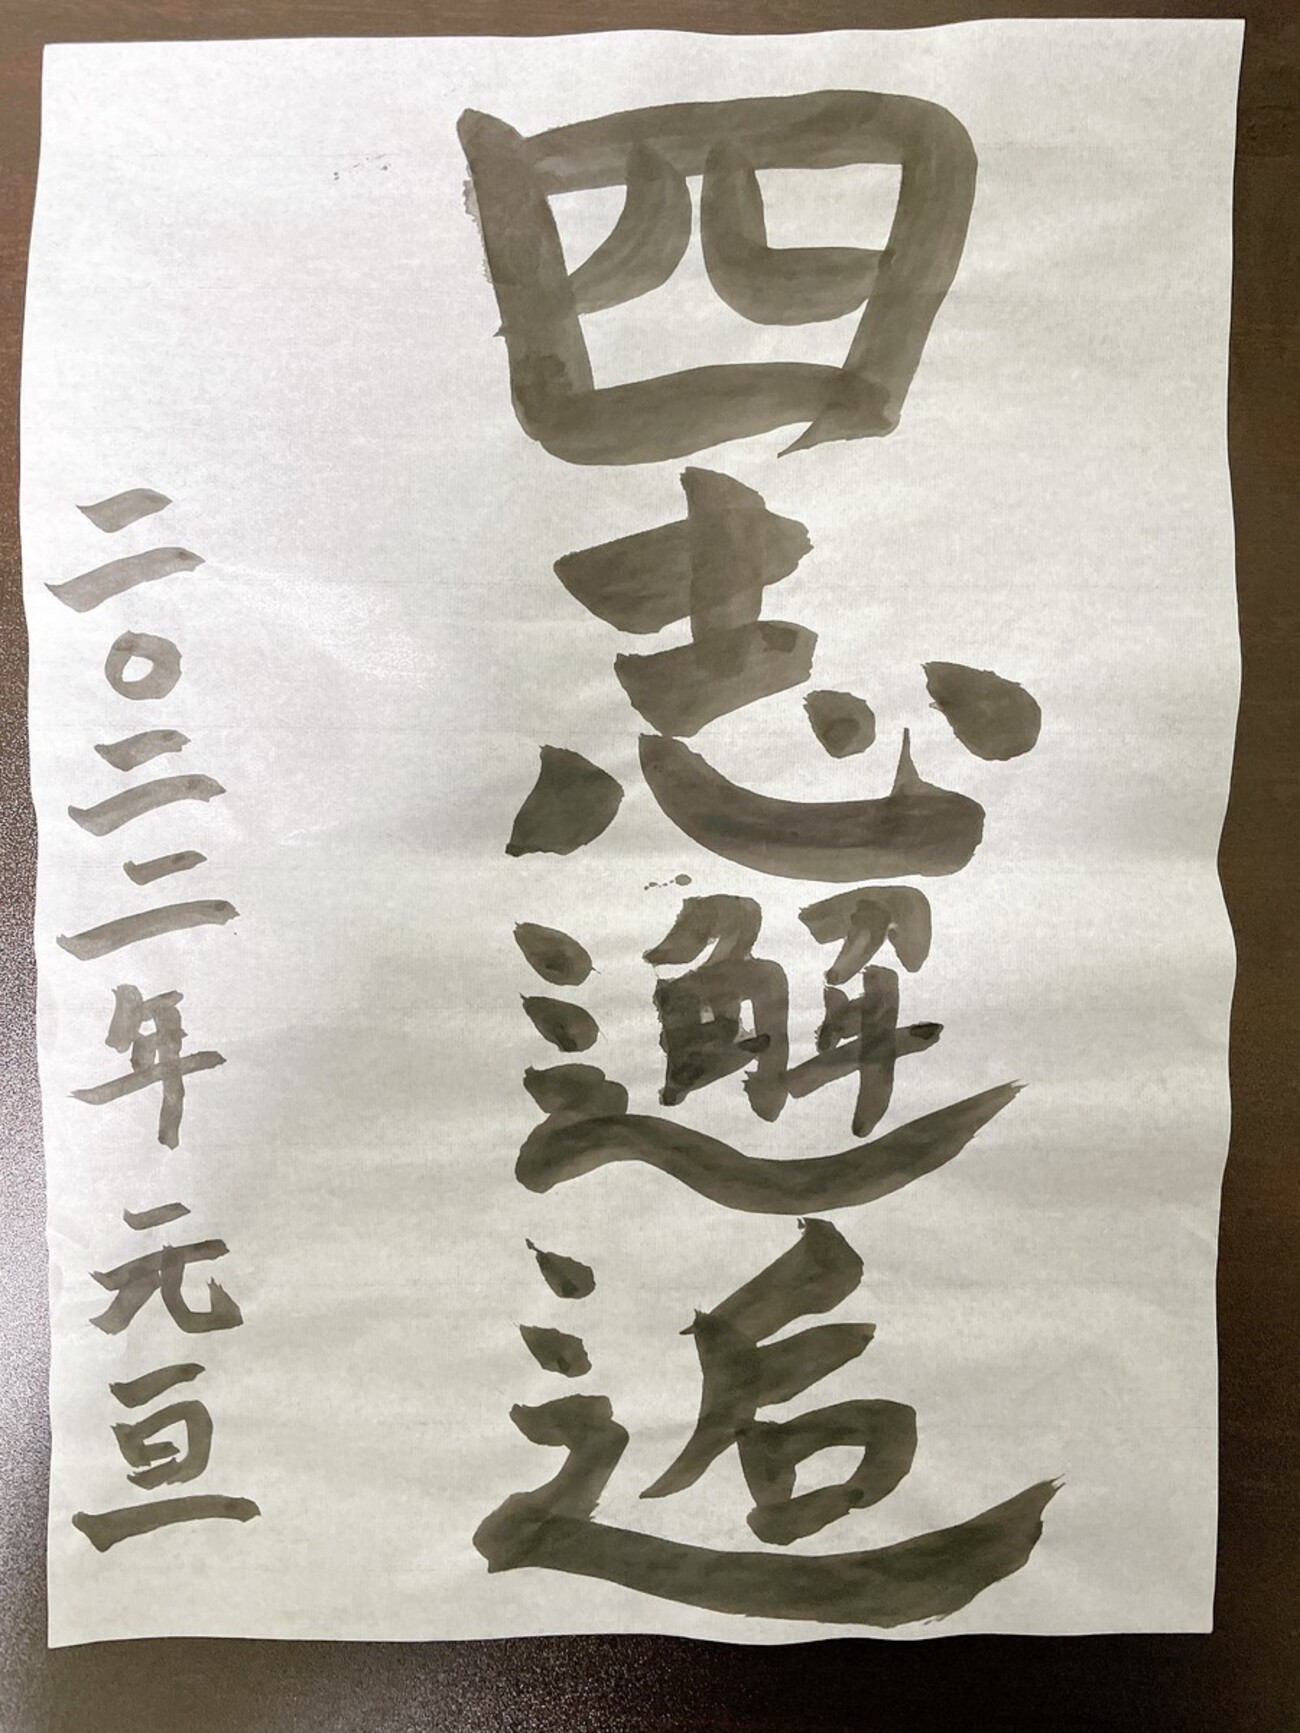 四志邂逅
二〇二二年元亘